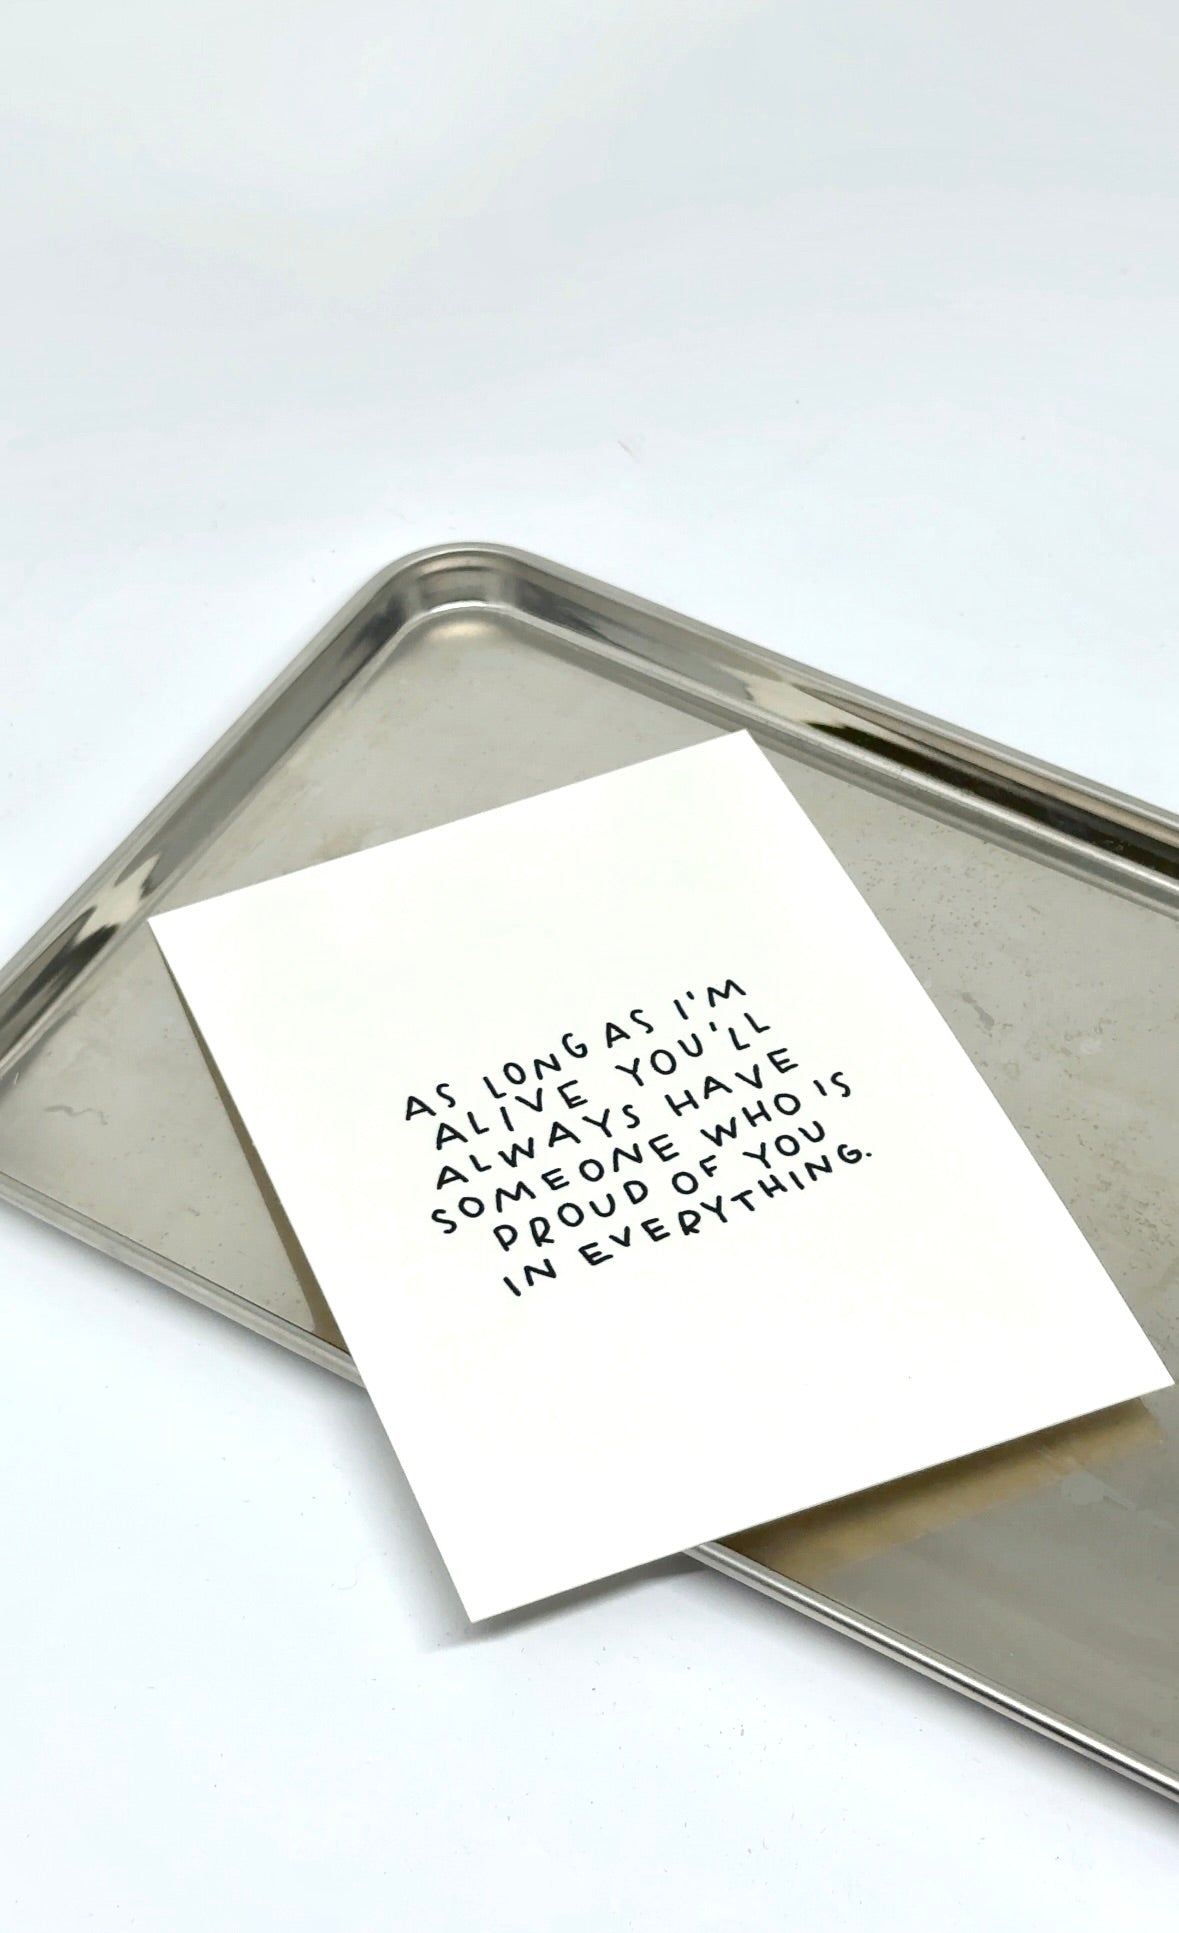 AS LONG AS I'M
ALIVE YOU'LL
ALWAYS HAVE
SOMEONE WHO IS
PROUD OF YOU
IN EVERYTHING.